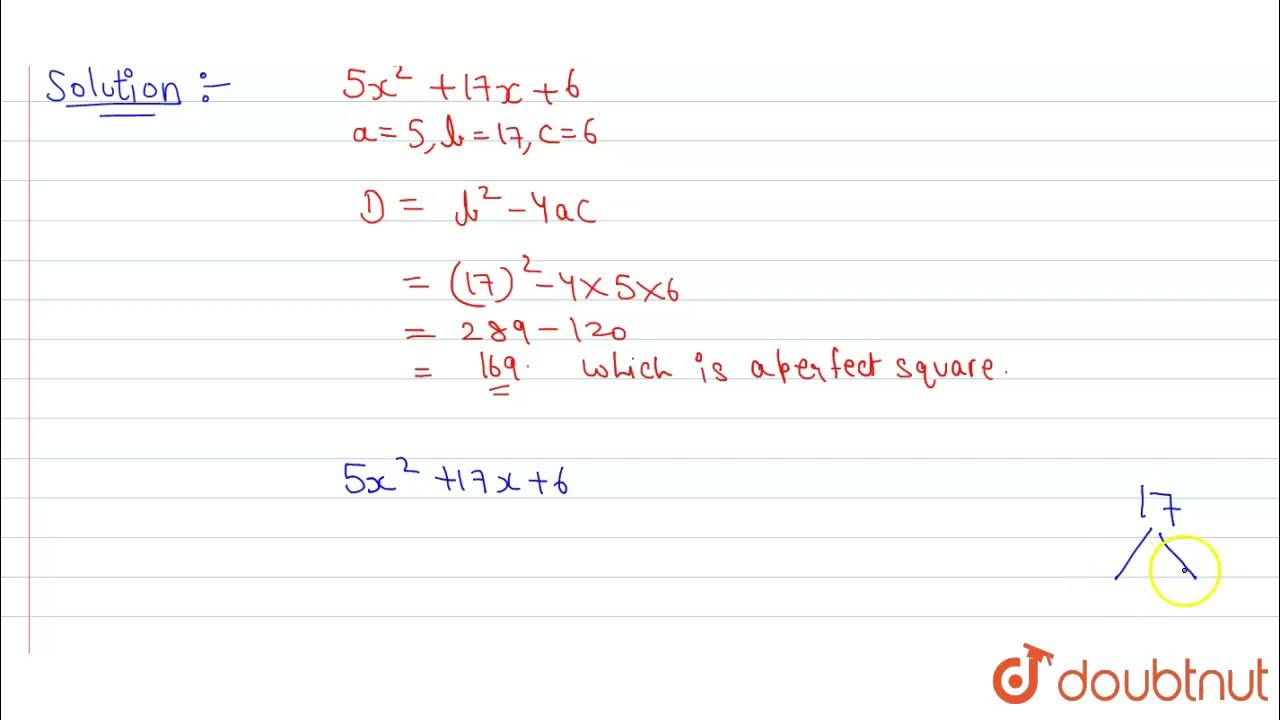 Solution :-
5x² + 17x + 6
a = 5, b = 17, c = 6
D = b² - 4ac
= (17)² - 4 × 5 × 6
= 289 - 120
= 169. which is a perfect square.
5x² + 17x + 6
17
doubtnut